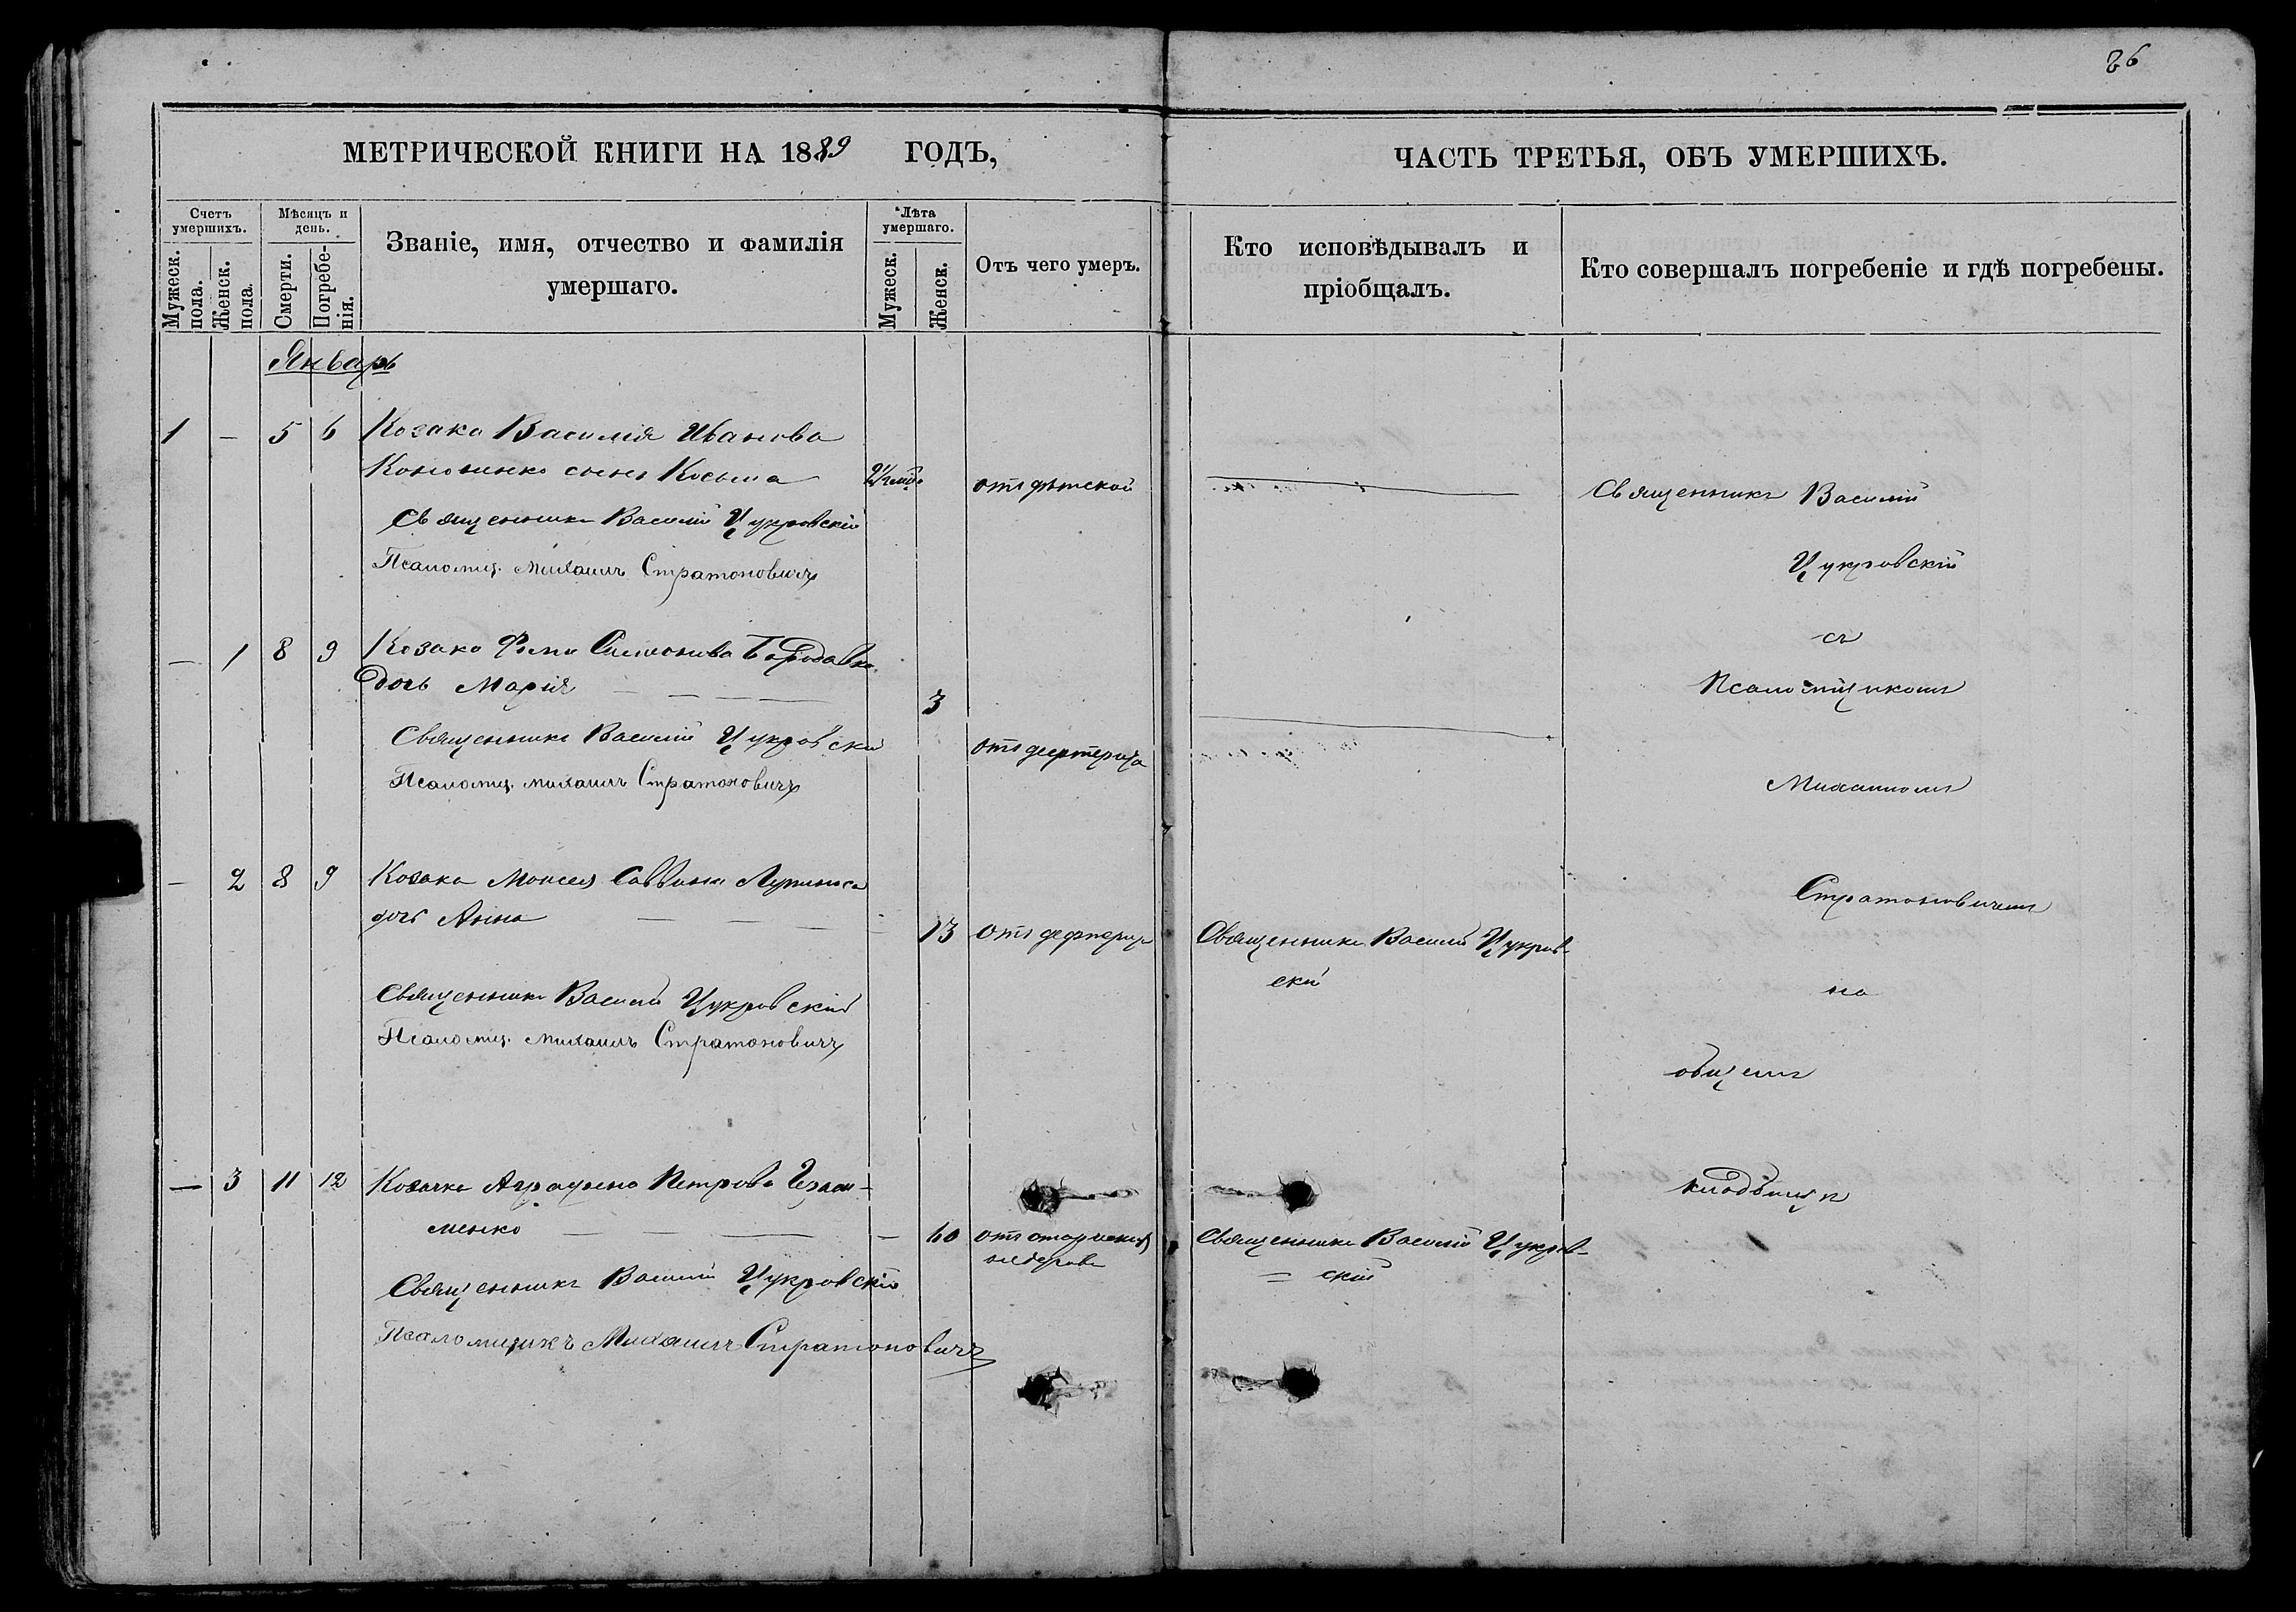 86
МЕТРИЧЕСКОЙ КНИГИ НА 1889 ГОДЪ,
ЧАСТЬ ТРЕТЬЯ, ОБЪ УМЕРШИХЪ.
Счетъ умершихъ.
Мужеск. пола.
Женск. пола.
Мѣсяцъ и день.
Смерти.
Погребе-нія.
Званіе, имя, отчество и фамилія
умершаго.
Лѣта умершаго.
Мужеск.
Женск.
Отъ чего умеръ.
Кто исповѣдывалъ и
пріобщалъ.
Кто совершалъ погребеніе и гдѣ погребены.
Январь
1 — 5 6 Козака Василія Иванова
сынъ Косьма
отъ дѣтской
Священникъ Василій Цукровскій
Псаломщ. Михаилъ Стратоновичъ
— 1 8 9 Козака Бородавка
дочь Марія — — — 3
Священникъ Василій Цукровскій
Псаломщ. Михаилъ Стратоновичъ
— 2 8 9 Козака Моисея Саввина
дочь Анна — — — 13 отъ
Священникъ Василій Цукров-
скій
Священникъ Василій Цукровскій
Псаломщ. Михаилъ Стратоновичъ
— 3 11 12 Козачка Петрова
менко — — — — 60 отъ
Священникъ Василій Цукров-
= скій
Священникъ Василій Цукровскій
Псаломщикъ Михаилъ Стратоновичъ
Священникъ Василій
Цукровскій
съ
Псаломщикомъ
Михаиломъ
Стратоновичемъ
на
общемъ
кладбищѣ